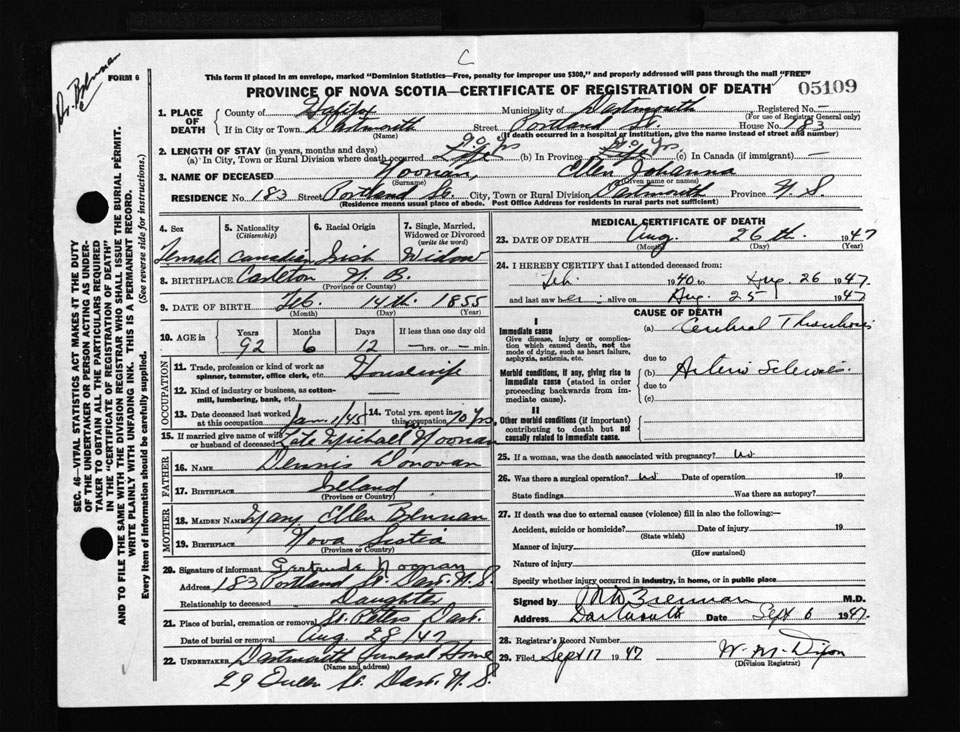 C
Dr. Brennan
FORM 6
This form if placed in an envelope, marked "Dominion Statistics—Free, penalty for improper use $300," and properly addressed will pass through the mail "FREE"
PROVINCE OF NOVA SCOTIA—CERTIFICATE OF REGISTRATION OF DEATH
05109
SEC. 46—VITAL STATISTICS ACT MAKES IT THE DUTY
OF THE UNDERTAKER OR PERSON ACTING AS UNDER-
TAKER TO OBTAIN ALL THE PARTICULARS REQUIRED
IN THE "CERTIFICATE OF REGISTRATION OF DEATH"
AND TO FILE THE SAME WITH THE DIVISION REGISTRAR WHO SHALL ISSUE THE BURIAL PERMIT.
WRITE PLAINLY WITH UNFADING INK. THIS IS A PERMANENT RECORD.
Every item of information should be carefully supplied. (See reverse side for instructions.)
1. PLACE OF DEATH County of Halifax Municipality of Dartmouth Registered No. —
(For use of Registrar General only)
If in City or Town Dartmouth Street Portland St. House No. 183
(If death occurred in a hospital or institution, give name instead of street and number)
2. LENGTH OF STAY (in years, months and days)
(a) In City, Town or Rural Division where death occurred (b) In Province (c) In Canada (if immigrant) —
3. NAME OF DECEASED Noonan, Ellen Johanna
(Surname) (Given name or names)
RESIDENCE No. 183 Street Portland St. City, Town or Rural Division Dartmouth Province N. S.
(Residence means usual place of abode. Post Office Address for residents in rural parts not sufficient)
4. Sex 5. Nationality (Citizenship) 6. Racial Origin 7. Single, Married, Widowed or Divorced (write the word)
Female Canadian Irish Widow
8. BIRTHPLACE Carleton N. B.
(Province or Country)
9. DATE OF BIRTH Feb. 14th 1855
(Month) (Day) (Year)
10. AGE in Years Months Days If less than one day old
92 6 12 — hrs. or — min.
OCCUPATION
11. Trade, profession or kind of work as spinner, teamster, office clerk, etc. Housewife
12. Kind of industry or business, as cotton-mill, lumbering, bank, etc. —
13. Date deceased last worked at this occupation Jan 1/45 14. Total yrs. spent in this occupation 70 Yrs.
15. If married give name of wife or husband of deceased Late Michael Noonan
FATHER
16. NAME Dennis Donovan
17. BIRTHPLACE Ireland
(Province or Country)
MOTHER
18. MAIDEN NAME Mary Ellen Brennan
19. BIRTHPLACE Nova Scotia
(Province or Country)
20. Signature of informant Gertrude Noonan
Address 183 Portland St. Dart. N. S.
Relationship to deceased Daughter
21. Place of burial, cremation or removal St. Peters Dart.
Date of burial or removal Aug 28/47
22. UNDERTAKER Dartmouth Funeral Home
(Name and address)
29 Queen St. Dart. N. S.
MEDICAL CERTIFICATE OF DEATH
23. DATE OF DEATH Aug. 26th 1947
(Month) (Day) (Year)
24. I HEREBY CERTIFY that I attended deceased from:
Feb 1940 to Aug. 26 1947
and last saw her alive on Aug. 25 1947
CAUSE OF DEATH
I
Immediate cause
Give disease, injury or complication which caused death, not the mode of dying, such as heart failure, asphyxia, asthenia, etc.
(a) Cerebral Thrombosis
due to
Morbid conditions, if any, giving rise to immediate cause (stated in order proceeding backwards from immediate cause).
(b) Arterio Sclerosis
due to
(c)
II
Other morbid conditions (if important) contributing to death but not causally related to immediate cause.
25. If a woman, was the death associated with pregnancy? No
26. Was there a surgical operation? No Date of operation 19
State findings Was there an autopsy?
27. If death was due to external causes (violence) fill in also the following:—
Accident, suicide or homicide? Date of injury 19
(State which)
Manner of injury
(How sustained)
Nature of injury
Specify whether injury occurred in industry, in home, or in public place
Signed by Brennan M.D.
Address Dartmouth Date Sept 6 1947.
28. Registrar's Record Number
29. Filed Sept 17 1947 W. M. Dixon
(Division Registrar)